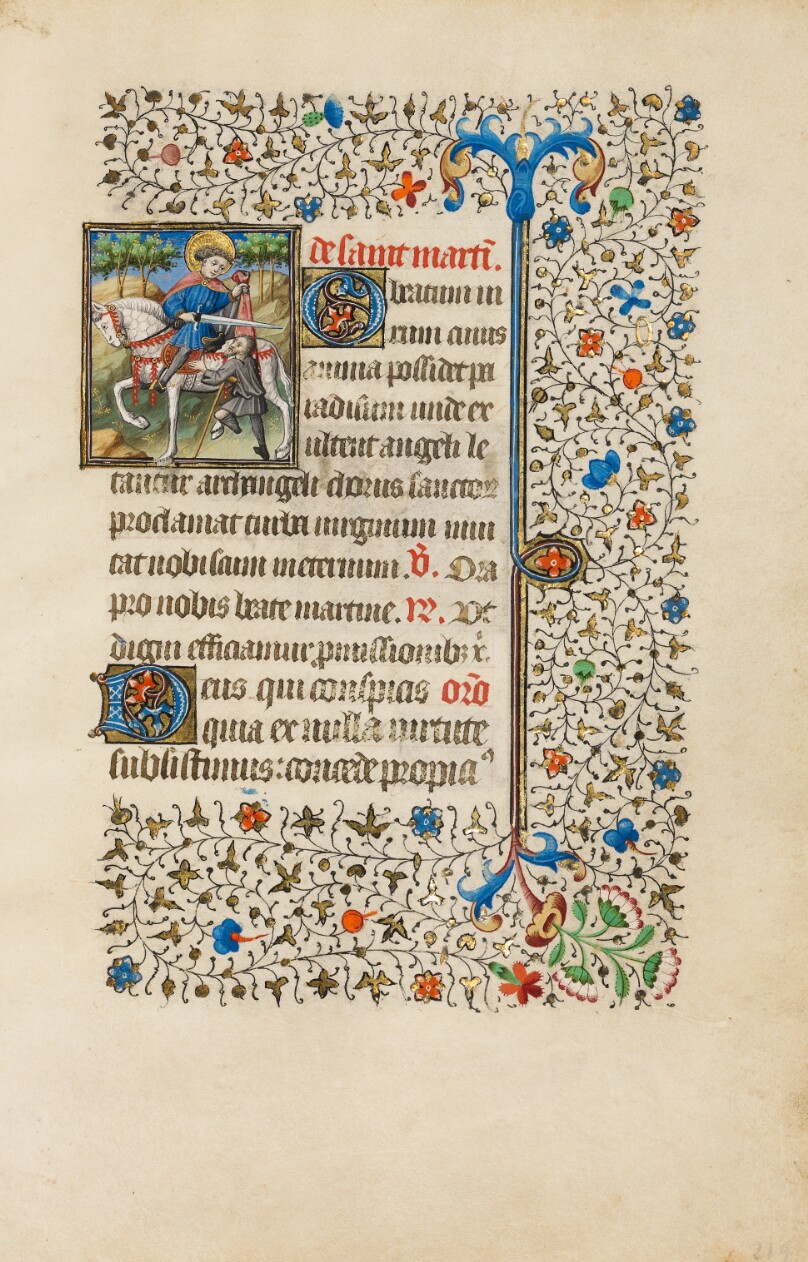 de saint martī.
O beatum ui
rum cuius
anima possidet pa
radisum unde ex
ultent angeli le
tantur archangeli chorus sanctoꝝ
proclamat turba uirginum inui
tat nobiscum ineternum. ℣. Ora
pro nobis beate martine. ℟. Vt
digni efficiamur ꝓmissionibꝫ x̄.
Deus qui conspicis orō
quia ex nulla uirtute
subsistimus: concede propiciꝰ